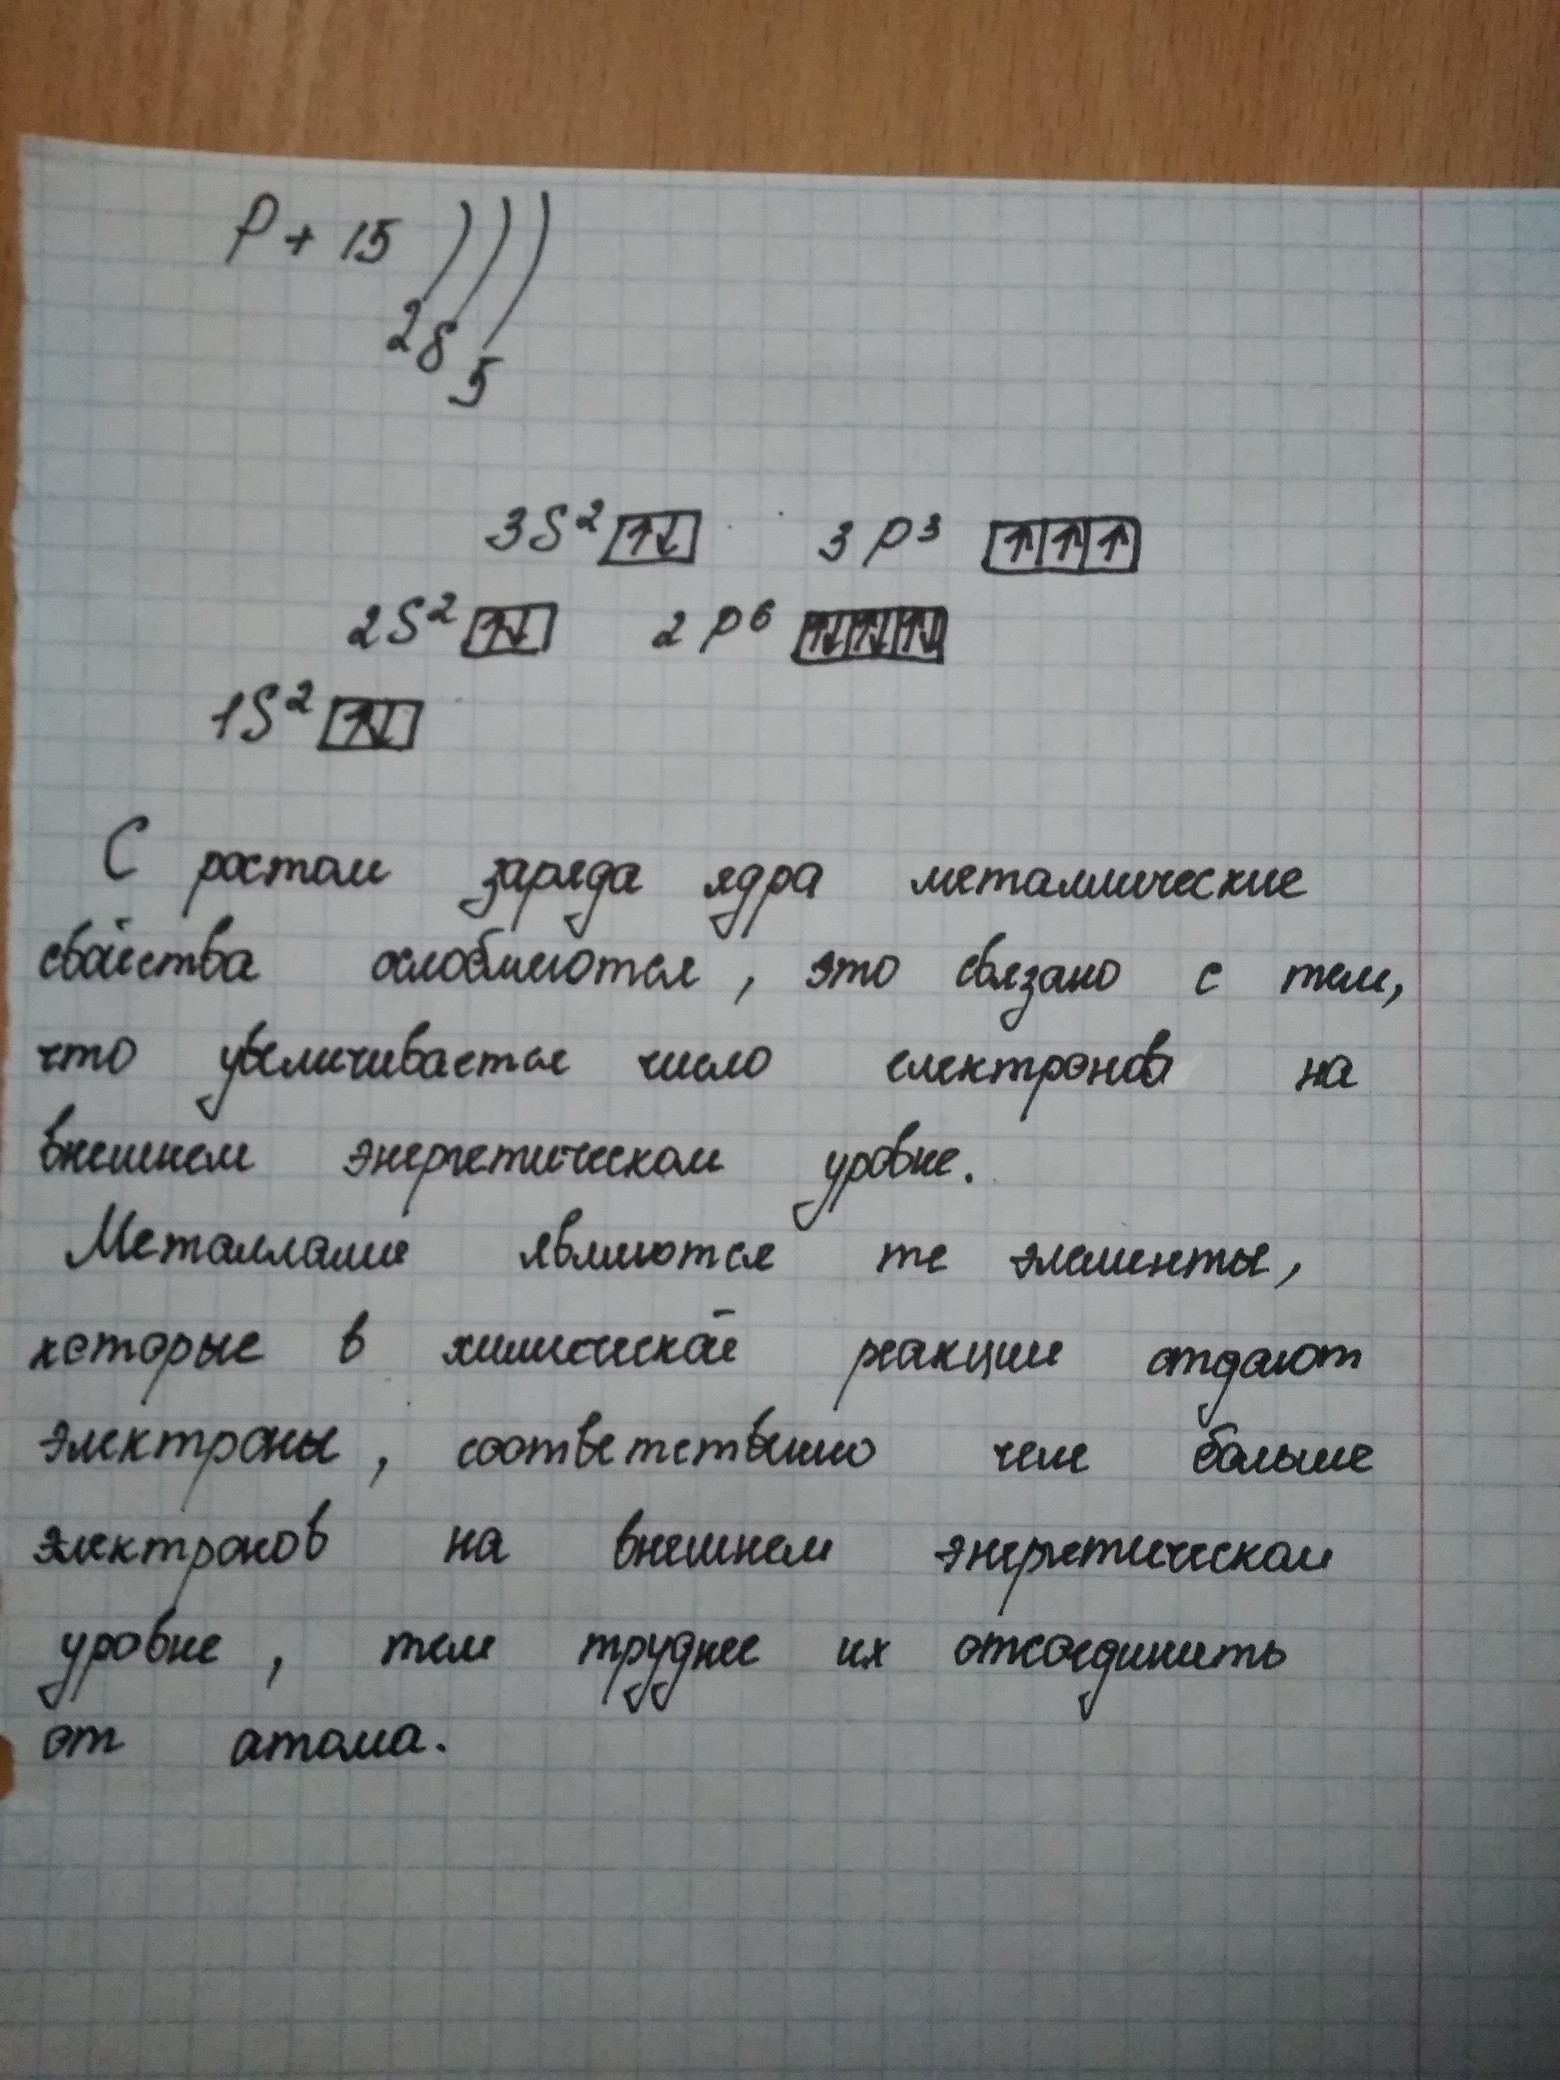 P + 15 ) ) )
2 8 5
3S² ↑↓ 3p³ ↑ ↑ ↑
2S² ↑↓ 2p⁶ ↑↓ ↑↓ ↑↓
1S² ↑↓
С ростом заряда ядра металлические
свойства ослобляются, это связано с тем,
что увеличивается число електронов на
внешнем энергетическом уровне.
Металлами являются те элементы,
которые в химической реакции отдают
электроны, соответственно чем больше
электронов на внешнем энергетическом
уровне, тем труднее их отсоединить
от атома.